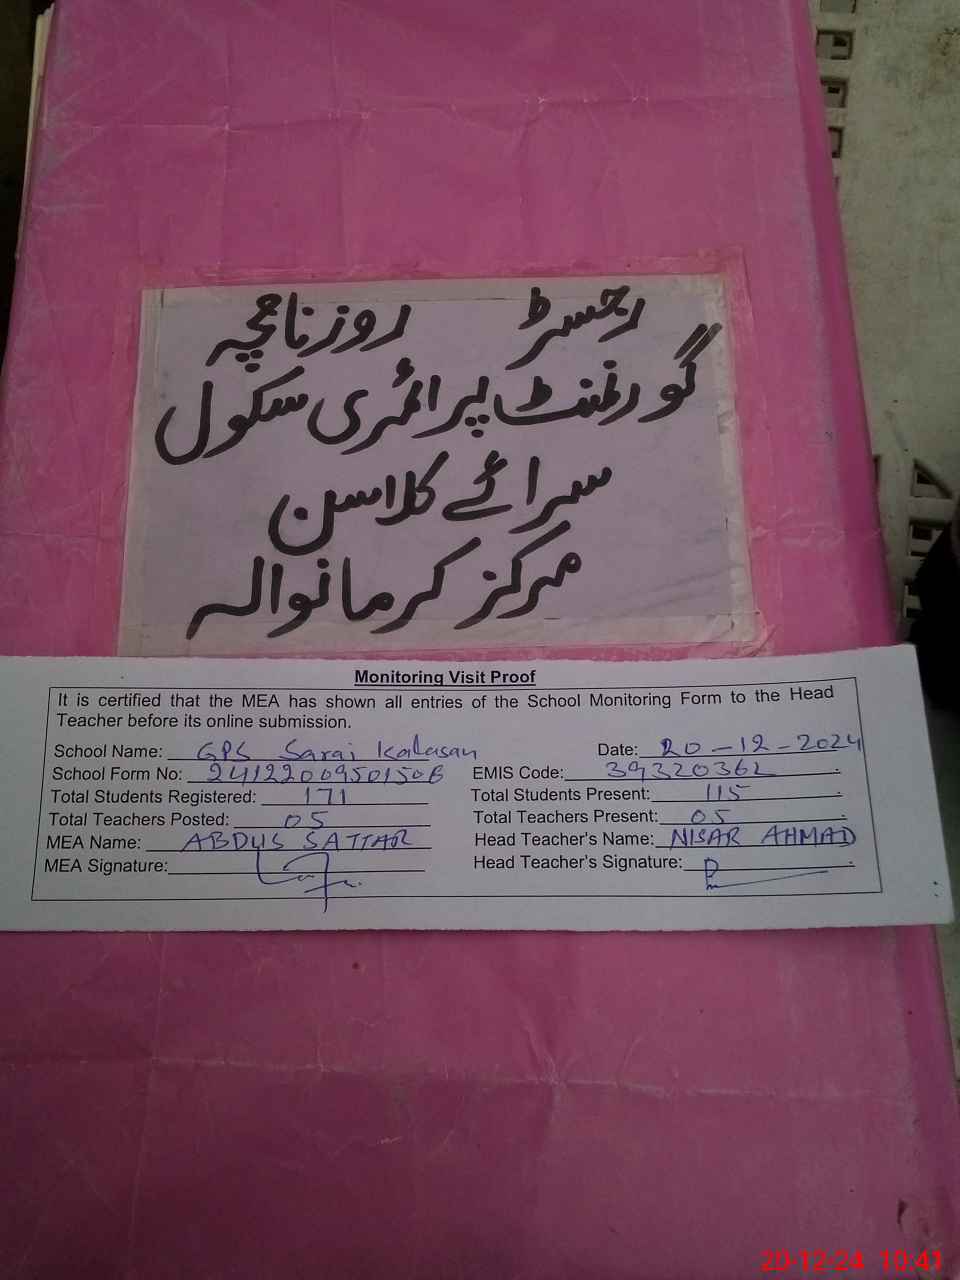 رجسٹر روزنامچہ
گورنمنٹ پرائمری سکول
سرائے کلاسن
مرکز کرمانوالہ
Monitoring Visit Proof
It is certified that the MEA has shown all entries of the School Monitoring Form to the Head
Teacher before its online submission.
School Name: GPS Sarai Kalasan Date: 20-12-2024
School Form No: 2412200950150B EMIS Code: 39320362
Total Students Registered: 171 Total Students Present: 115
Total Teachers Posted: 05 Total Teachers Present: 05
MEA Name: ABDUS SATTAR Head Teacher's Name: NISAR AHMAD
MEA Signature: Head Teacher's Signature:
20-12-24 10:41